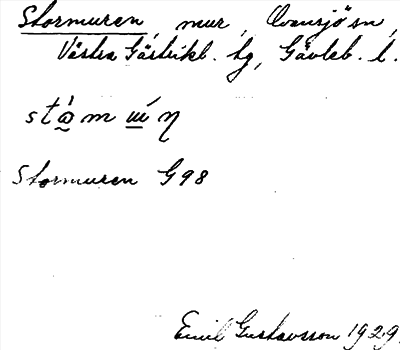 Stormuren, mur, Ovansjö sn,
Västra Gästrikl. tg, Gävleb. l.
Stormuren G98
Emil Gustavsson 1929.